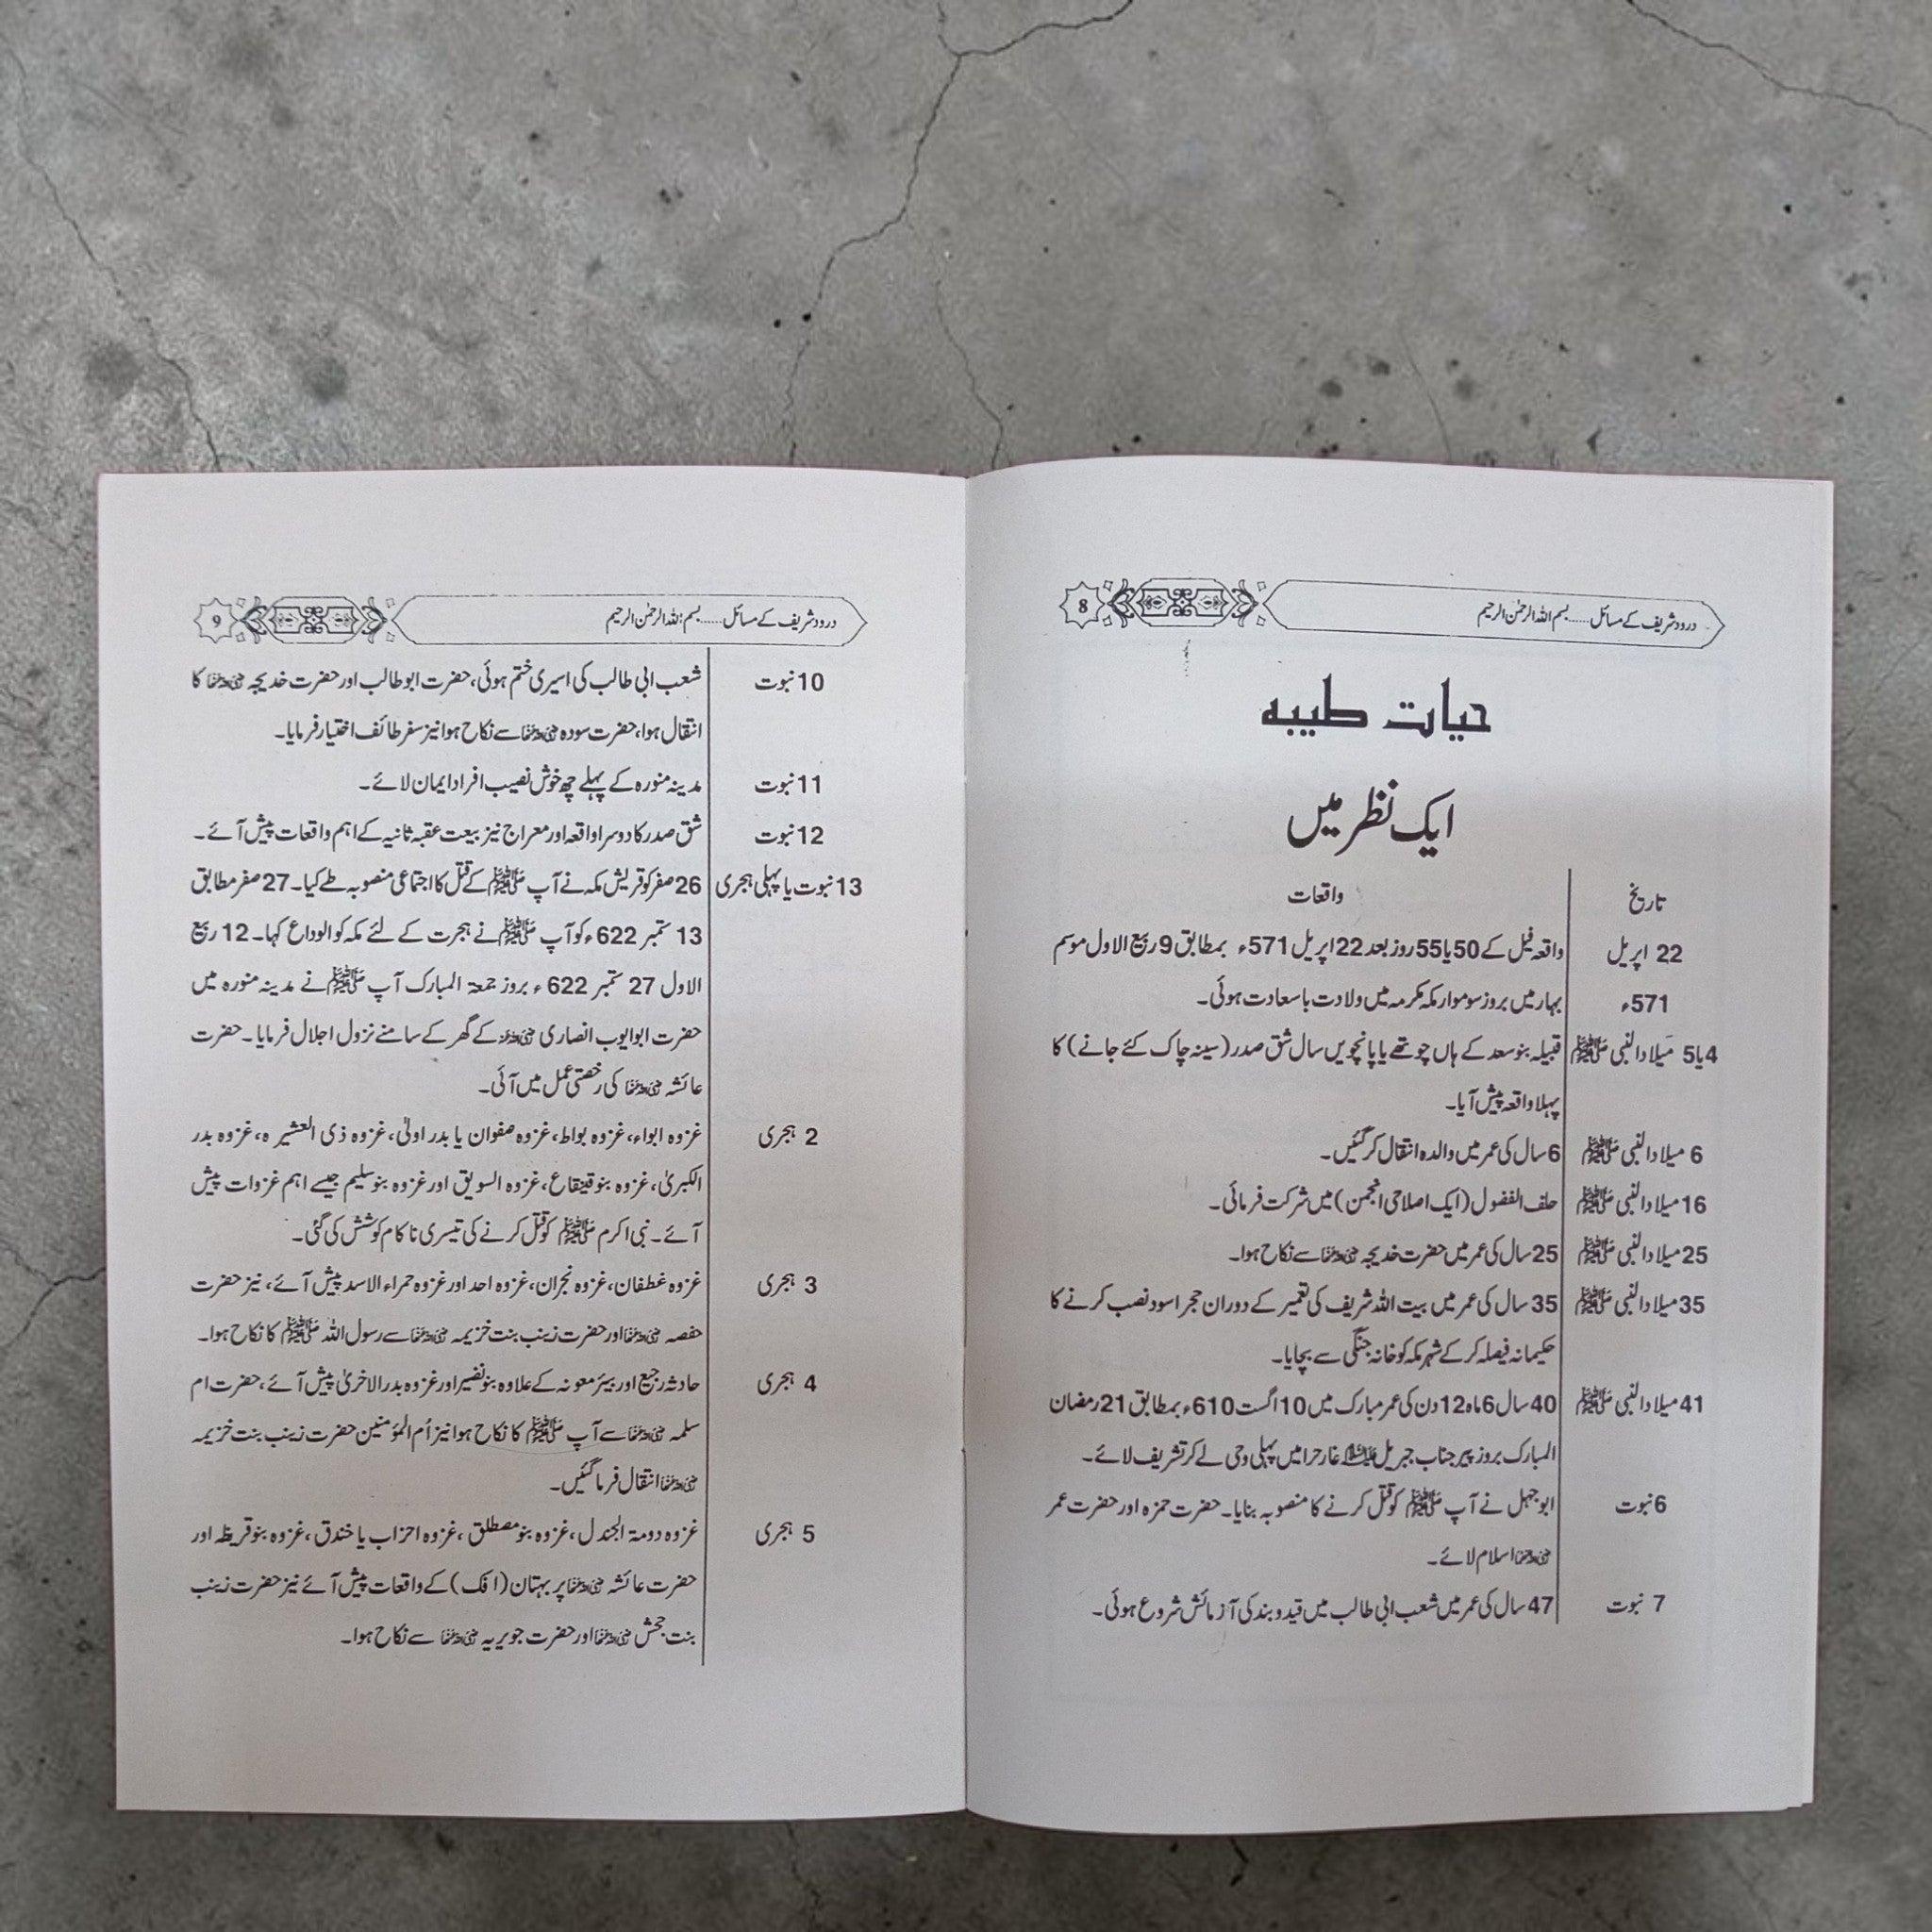 درود شریف کے مسائل...... بسم اللہ الرحمٰن الرحیم
8
حیات طیبہ
ایک نظر میں
تاریخ واقعات
22 اپریل واقعہ فیل کے 50 یا 55 روز بعد 22 اپریل 571ء بمطابق 9 ربیع الاول موسم
571ء بہار میں بروز سوموار مکہ مکرمہ میں ولادت باسعادت ہوئی۔
4یا5 میلاد النبی ﷺ قبیلہ بنو سعد کے ہاں چوتھے یا پانچویں سال شق صدر (سینہ چاک کئے جانے) کا
پہلا واقعہ پیش آیا۔
6 میلاد النبی ﷺ 6 سال کی عمر میں والدہ انتقال کر گئیں۔
16 میلاد النبی ﷺ حلف الفضول (ایک اصلاحی انجمن) میں شرکت فرمائی۔
25 میلاد النبی ﷺ 25 سال کی عمر میں حضرت خدیجہ رضی اللہ عنہا سے نکاح ہوا۔
35 میلاد النبی ﷺ 35 سال کی عمر میں بیت اللہ شریف کی تعمیر کے دوران حجر اسود نصب کرنے کا
حکیمانہ فیصلہ کر کے شہر مکہ کو خانہ جنگی سے بچایا۔
41 میلاد النبی ﷺ 40 سال 6 ماہ 12 دن کی عمر مبارک میں 10 اگست 610ء بمطابق 21 رمضان
المبارک بروز پیر جناب جبریل علیہ السلام غار حرا میں پہلی وحی لے کر تشریف لائے۔
6 نبوت ابو جہل نے آپ ﷺ کو قتل کرنے کا منصوبہ بنایا۔ حضرت حمزہ اور حضرت عمر
رضی اللہ عنہما اسلام لائے۔
7 نبوت 47 سال کی عمر میں شعب ابی طالب میں قید و بند کی آزمائش شروع ہوئی۔
درود شریف کے مسائل...... بسم اللہ الرحمٰن الرحیم
9
10 نبوت شعب ابی طالب کی اسیری ختم ہوئی، حضرت ابو طالب اور حضرت خدیجہ رضی اللہ عنہا کا
انتقال ہوا، حضرت سودہ رضی اللہ عنہا سے نکاح ہوا نیز سفر طائف اختیار فرمایا۔
11 نبوت مدینہ منورہ کے پہلے چھ خوش نصیب افراد ایمان لائے۔
12 نبوت شق صدر کا دوسرا واقعہ اور معراج نیز بیعت عقبہ ثانیہ کے اہم واقعات پیش آئے۔
13 نبوت یا پہلی ہجری 26 صفر کو قریش مکہ نے آپ ﷺ کے قتل کا اجتماعی منصوبہ طے کیا۔ 27 صفر مطابق
13 ستمبر 622ء کو آپ ﷺ نے ہجرت کے لئے مکہ کو الوداع کہا۔ 12 ربیع
الاول 27 ستمبر 622ء بروز جمعۃ المبارک آپ ﷺ نے مدینہ منورہ میں
حضرت ابو ایوب انصاری رضی اللہ عنہ کے گھر کے سامنے نزول اجلال فرمایا۔ حضرت
عائشہ رضی اللہ عنہا کی رخصتی عمل میں آئی۔
2 ہجری غزوہ ابواء، غزوہ بواط، غزوہ صفوان یا بدر اولیٰ، غزوہ ذی العشیرہ، غزوہ بدر
الکبریٰ، غزوہ بنو قینقاع، غزوہ السویق اور غزوہ بنو سلیم جیسے اہم غزوات پیش
آئے۔ نبی اکرم ﷺ کو قتل کرنے کی تیسری ناکام کوشش کی گئی۔
3 ہجری غزوہ غطفان، غزوہ نجران، غزوہ احد اور غزوہ حمراء الاسد پیش آئے، نیز حضرت
حفصہ رضی اللہ عنہا اور حضرت زینب بنت خزیمہ رضی اللہ عنہا سے رسول اللہ ﷺ کا نکاح ہوا۔
4 ہجری حادثہ رجیع اور بیئر معونہ کے علاوہ بنو نضیر اور غزوہ بدر الاخریٰ پیش آئے، حضرت ام
سلمہ رضی اللہ عنہا سے آپ ﷺ کا نکاح ہوا نیز اُم المؤمنین حضرت زینب بنت خزیمہ
رضی اللہ عنہا انتقال فرما گئیں۔
5 ہجری غزوہ دومۃ الجندل، غزوہ بنو مصطلق، غزوہ احزاب یا خندق، غزوہ بنو قریظہ اور
حضرت عائشہ رضی اللہ عنہا پر بہتان (افک) کے واقعات پیش آئے نیز حضرت زینب
بنت جحش رضی اللہ عنہا اور حضرت جویریہ رضی اللہ عنہا سے نکاح ہوا۔